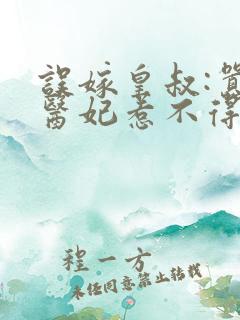 誤嫁皇叔:
醫妃惹不得
程一方
未經同意禁止轉載